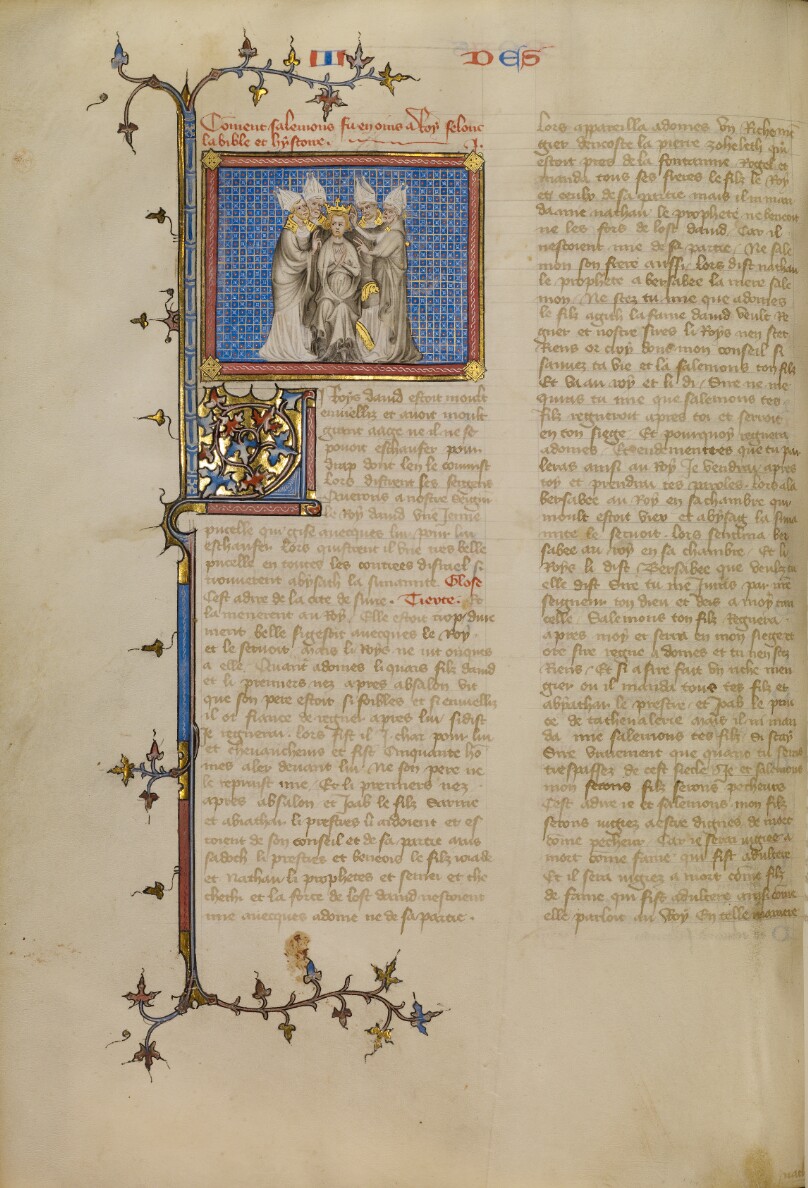 II DES
Coment salemons fu enoins a Roy selonc
la bible et hystoire. I.
Li Roys dauid estoit moult
enuielliz et auoit moult
grant aage ne il ne se
pouoit eschaufer pour
drap dont len le couurist
Lors distrent ses sergens
querons a nostre seigneur
le Roy dauid vne Jenne
pucelle qui gise auecques lui pour lui
eschaufer Lors quistrent il vne tres belle
pucelle en toutes les contrees disrael si
trouuerent abysach la sunamite. Glose
Cest adire de la cite de sune. Tierte. Et
la menerent au Roy. Elle estoit trop dure
ment belle si gisoit auecques le Roy
et le seruoit. mais li Roys ne iut onques
a elle. Quant adonies li quars filz dauid
et li premiers nez apres absalon vit
que son pere estoit si foibles et si enuielliz
il ot fiance de regner apres lui si dist
Je regnerai. lors fist il I. char pour lui
et cheuaucheurs et fist Cinquante ho
mes aler deuant lui. Ne son pere ne
le reprinst mie. Et li premiers nez
apres absalon et Joab le filz saruie
et abiathar li prestres li aidoient et es
toient de son conseil et de sa partie mais
sadoch li prestres et benoies le filz ioiade
et Nathan li prophetes et semei et the
chethi et la force de lost dauid nestoient
mie auecques adonie ne de sa partie.
Lors appareilla adonies vn Riche mē
gier dencoste la pierre zoheleth qui
estoit pres de la fontainne Rogel et
manda tous ses freres le filz le Roy
et ceulx de sa partie mais il ni man
da mie nathan le prophete ne benoien
ne les fors de lost dauid. Car il
nestoient mie de sa partie. Ne sale
mon son frere aussi. Lors dist nathan
le prophete a bersabee la mere sale
mon. Ne scez tu mie que adonies
le filz agith la fame dauid veult Re
gner et nostre sires li Roys nen scet
Riens or croy donc mon conseil si
sauuez ta vie et la salemons ton filz
Et va au roy et li di. Sire ne me
iuras tu mie que salemons tes
filz regneroit apres toi et serroit
en ton siege. Et pourquoy regnera
adonies. Et endementres que tu par
leras ainsi au Roy Je vendrai apres
toy et prendrai tes paroles. Lors ala
bersabee au Roy en sa chambre qui
moult estoit viex et abysag la suna
mite le seruoit. Lors senclina ber
sabee au roy en sa chambre. Et li
Roys li dist. Bersabee que veulz tu
elle dist Sire tu me Juras par nrē
seigneur ton dieu et deis a moy tan
celle. Salemons ton filz Regnera
apres moy et serra en mon siege et
ore sire regne adonies et tu nen scez
Riens. Et si a fire fait vn riche men
gier ou il manda tous tes filz et
abyathar le prestre et Joab le prin
ce de la cheualerie mais il ni man
da mie salemons tes filz. Si scay
Sire vraiement que quant tu seras
trespassez de cest siecle Je et salemons
mon filz serons pecheurs
Cest adire ie et salemons mon filz
serons iugiez a estre dignes de mort
come pecheur. Car ie serai iugiee a
mort come fame qui fist adultere
Et il sera iugiez a mort come filz
de fame qui fist adultere ainsi come
elle parloit au Roy En telle maniere